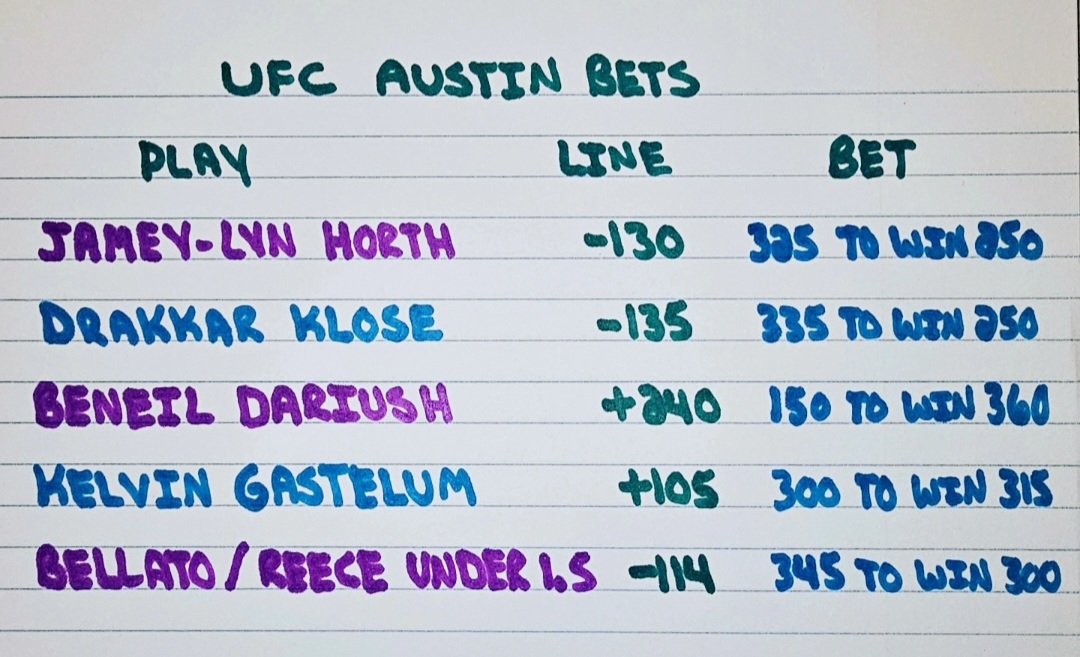 UFC AUSTIN BETS
PLAY LINE BET
JAMEY-LYN HORTH -130 325 TO WIN 250
DRAKKAR KLOSE -135 335 TO WIN 250
BENEIL DARIUSH +240 150 TO WIN 360
KELVIN GASTELUM +105 300 TO WIN 315
BELLATO/REECE UNDER 1.5 -114 345 TO WIN 300